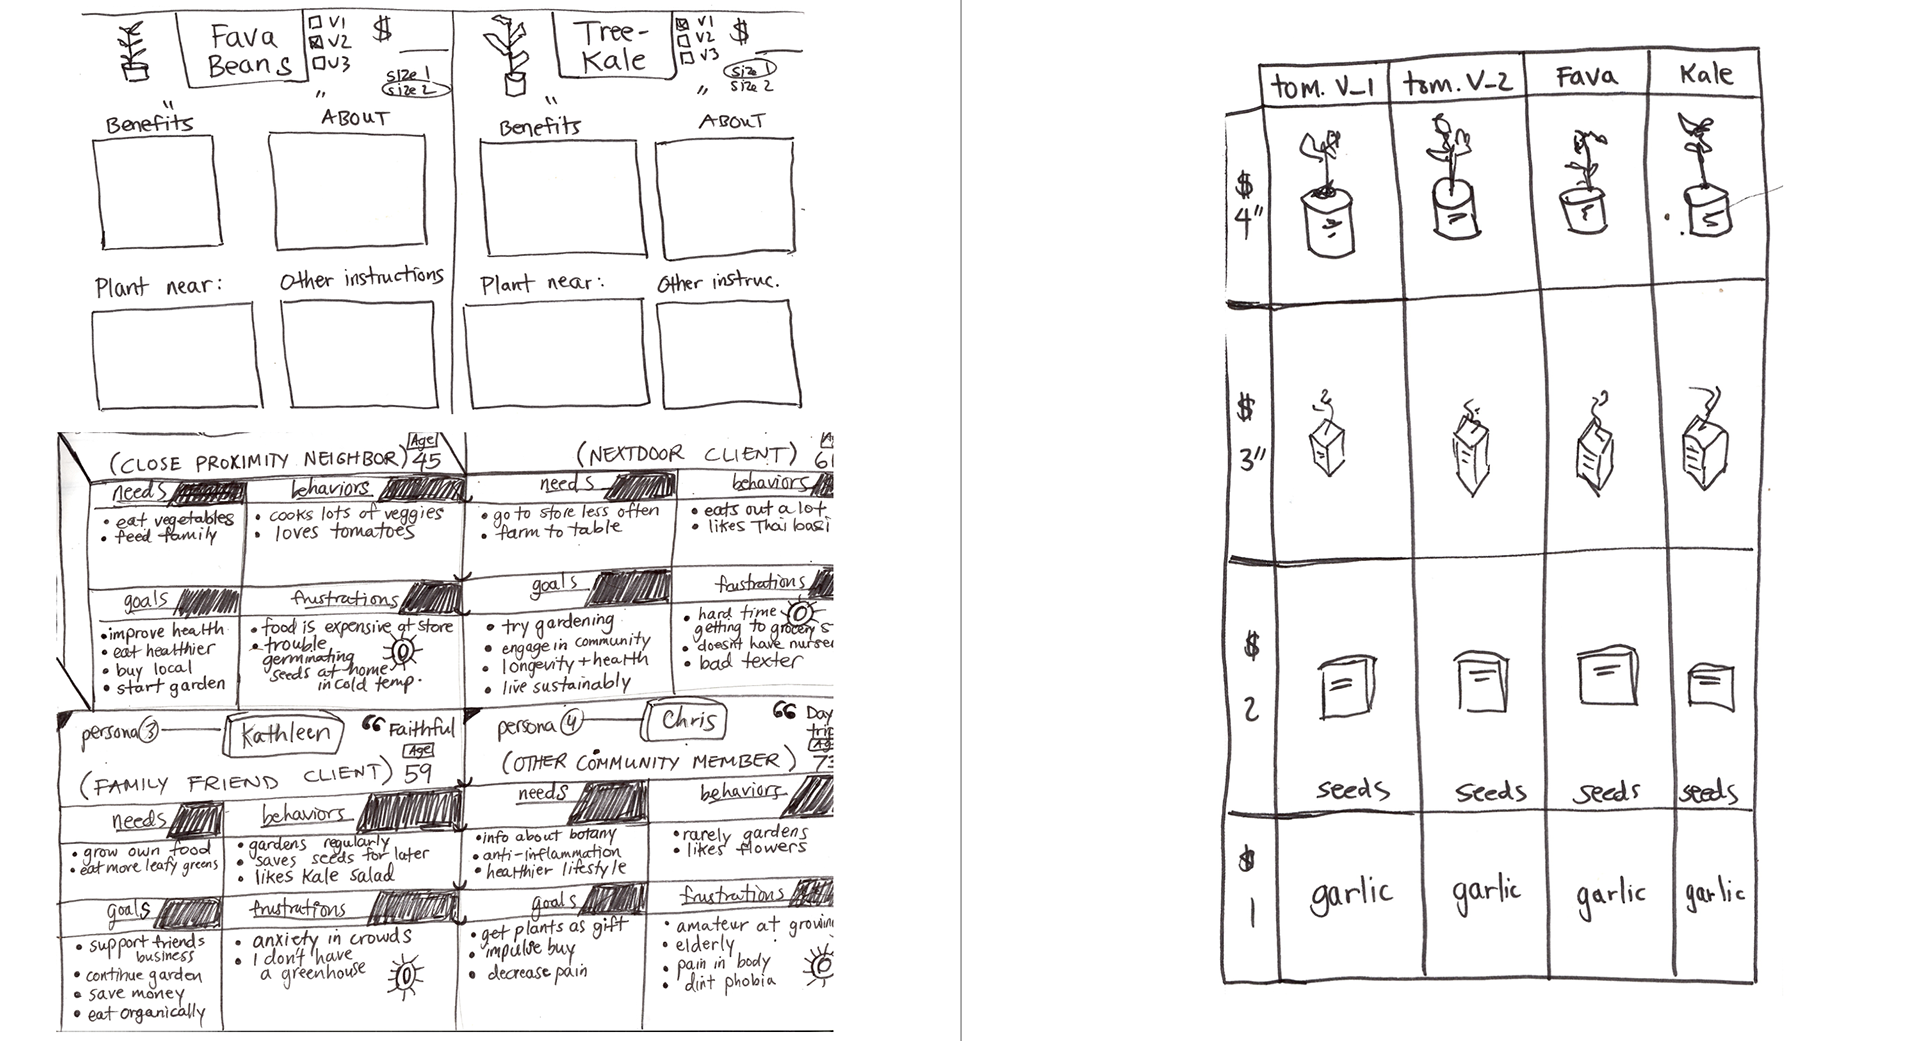 Fava
Beans
V1
V2
V3
$
size 1
size 2
"
Benefits
"
ABOUT
Plant near:
Other instructions
Tree-
Kale
V1
V2
V3
$
size 1
size 2
"
Benefits
"
ABOUT
Plant near:
Other instruc.
(CLOSE PROXIMITY NEIGHBOR)
Age
45
needs
• eat vegetables
• feed family
behaviors
• cooks lots of veggies
• loves tomatoes
goals
• improve health
• eat healthier
• buy local
• start garden
frustrations
• food is expensive at store
• trouble
germinating
seeds at home
in cold temp.
(NEXTDOOR CLIENT)
61
needs
• go to store less often
• farm to table
behaviors
• eats out a lot
• likes Thai basi
goals
• try gardening
• engage in community
• longevity + health
• live sustainably
frustrations
• hard time
getting to grocery s
• doesn't have nurse
• bad texter
persona 3
Kathleen
“ Faithful
Age
59
(FAMILY FRIEND CLIENT)
needs
• grow own food
• eat more leafy greens
behaviors
• gardens regularly
• saves seeds for later
• likes Kale salad
goals
• support friends
business
• continue garden
• save money
• eat organically
frustrations
• anxiety in crowds
• I don't have
a greenhouse
persona 4
Chris
“ Day
trip
Ag
73
(OTHER COMMUNITY MEMBER)
needs
• info about botany
• anti-inflammation
• healthier lifestyle
behaviors
• rarely gardens
• likes flowers
goals
• get plants as gift
• impulse buy
• decrease pain
frustrations
• amateur at growin
• elderly
• pain in body
• dirt phobia
tom. V_1 tom. V_2 Fava Kale
$
4"
$
3"
$
2
seeds seeds seeds seeds
$
1
garlic garlic garlic garlic